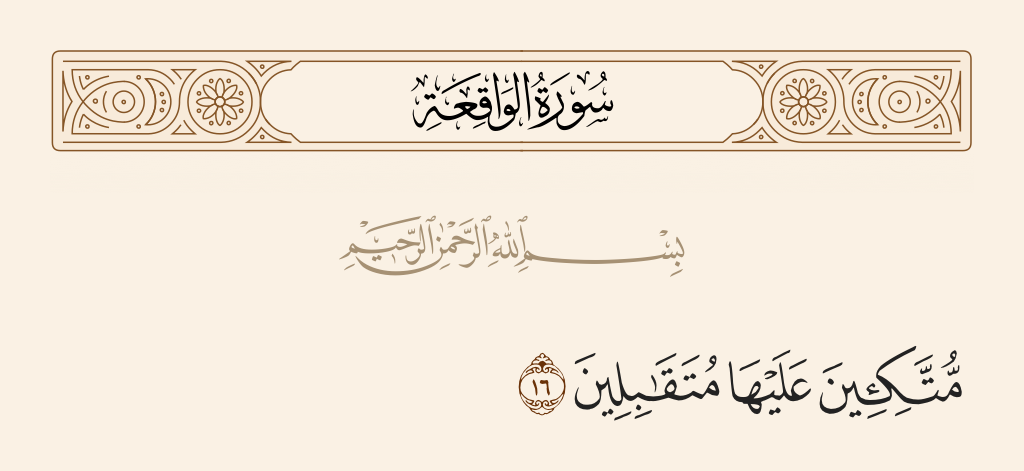 سُورَةُ الوَاقِعَةِ
بِسْمِ ٱللَّهِ ٱلرَّحْمَٰنِ ٱلرَّحِيمِ
مُّتَّكِـِٔينَ عَلَيْهَا مُتَقَـٰبِلِينَ ١٦